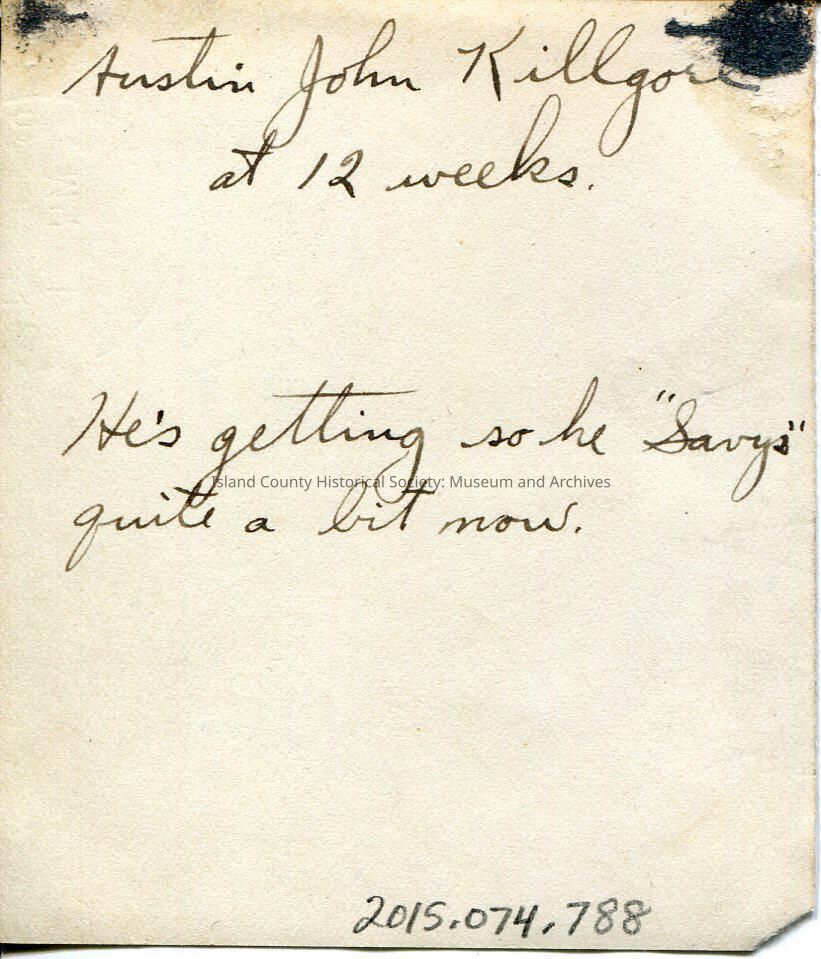 Austin John Killgore
at 12 weeks.
He's getting so he "Savys"
Island County Historical Society: Museum and Archives
quite a bit now.
2015.074.788